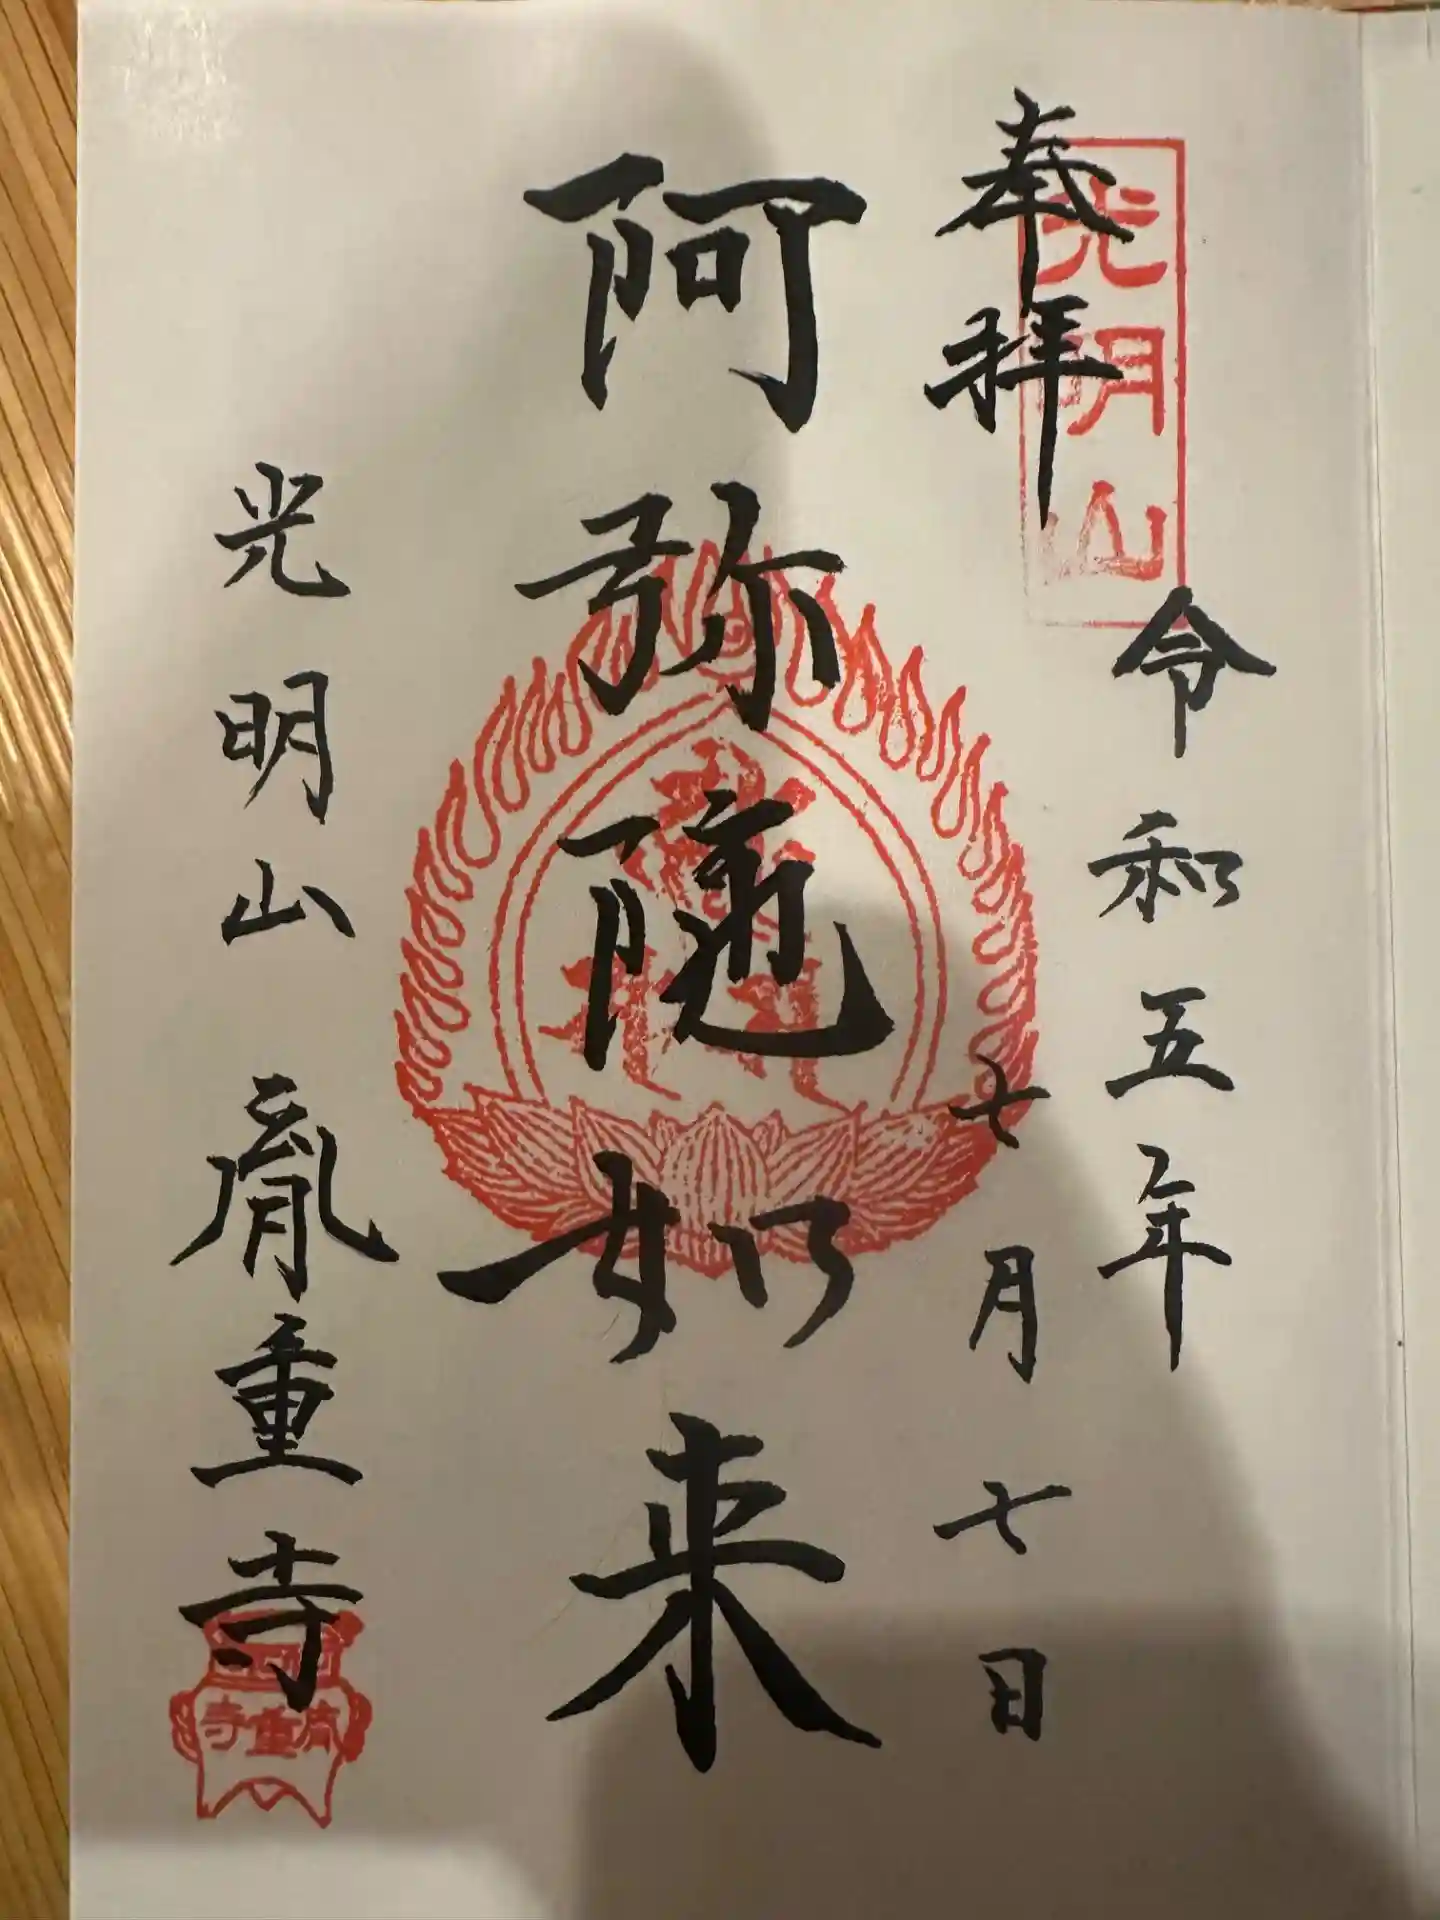 奉拝
光明山
令和五年
七月七日
阿弥随如来
光明山 胤重寺
胤重寺